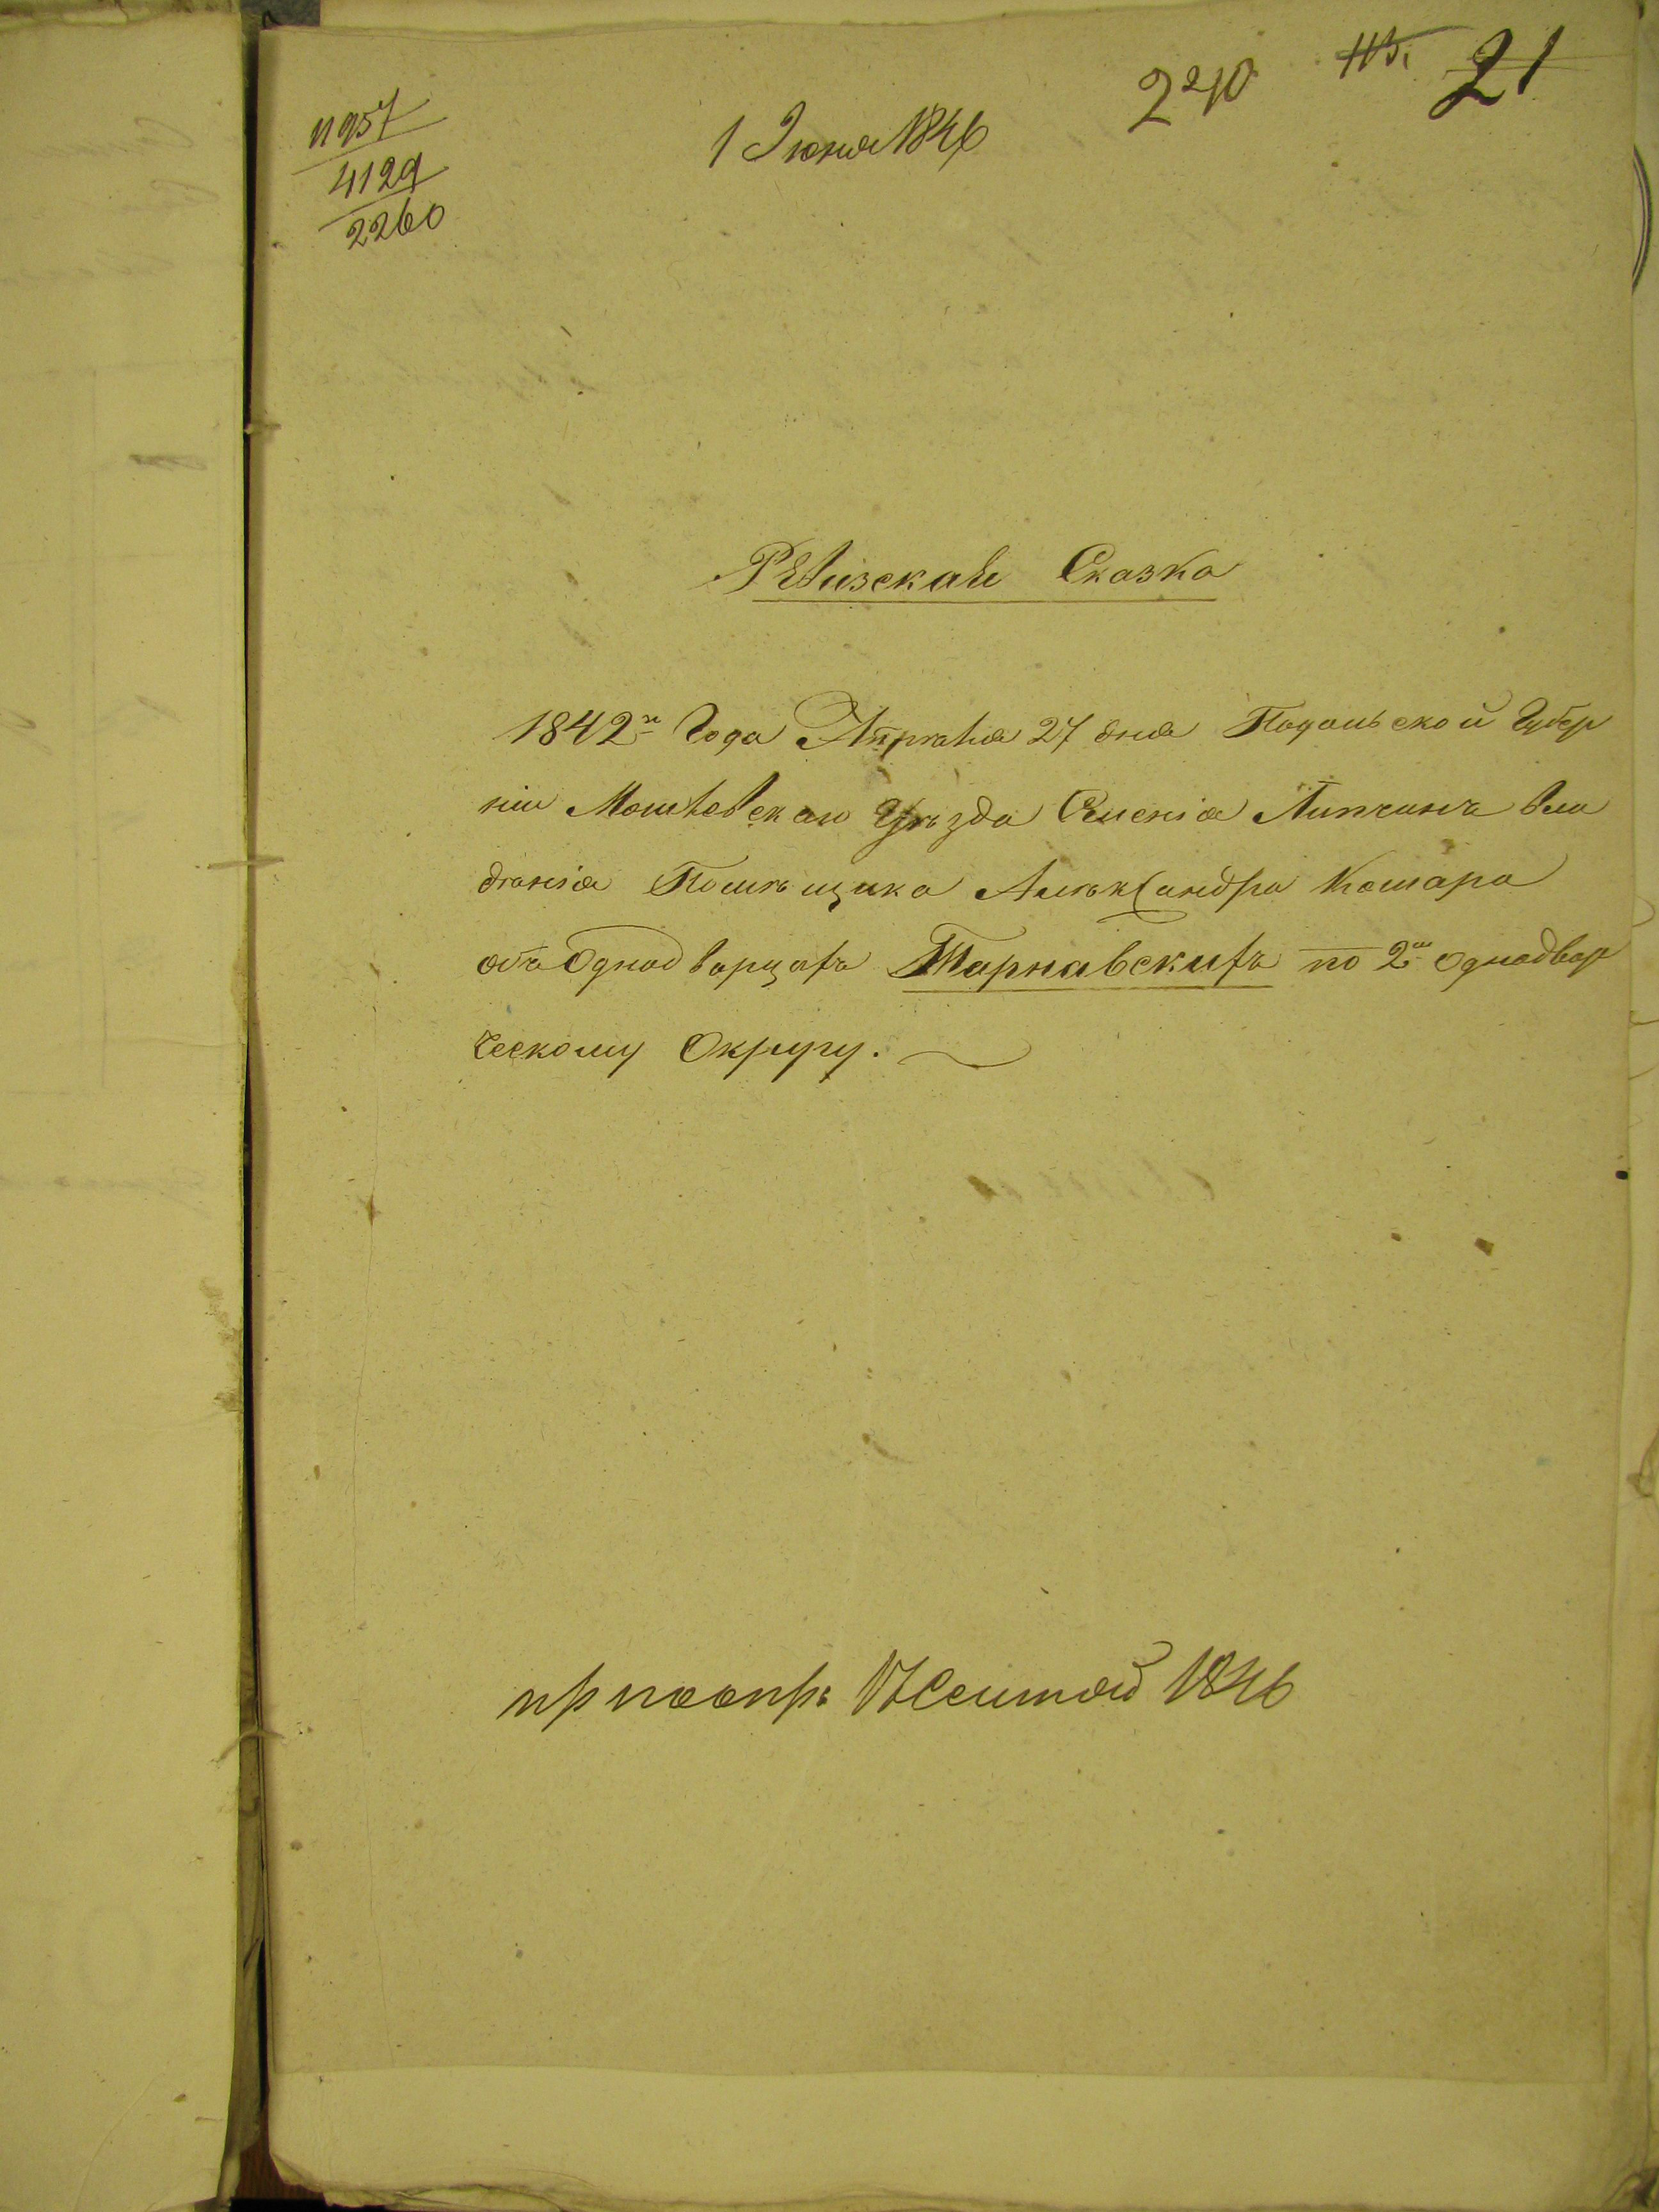 11957
4129
2260
1 Июня 1846
21
Ревизская Сказка
1842го Года Апреля 27 дня Подольской Губер
ніи Могилевскаго Уѣзда Селенія Липчинъ вла
дѣнія Помѣщика Алѣксандра Комара
объ Однодворцахъ Тарнавскихъ по 2му однодвор
ческому Округу.
1846